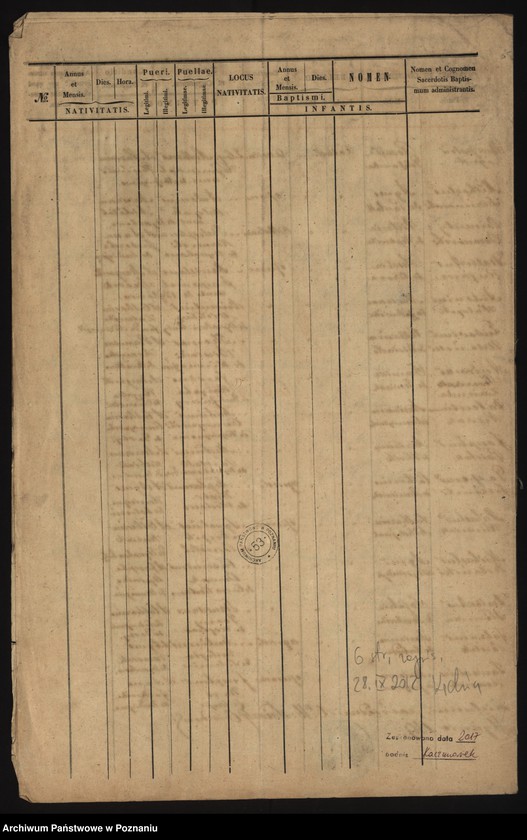 №
Annus et Mensis.
Dies.
Hora.
NATIVITATIS.
Pueri.
Legitimi.
Illegitimi.
Puellae.
Legitimae.
Illegitimae.
LOCUS
NATIVITATIS.
Annus et Mensis.
Dies.
Baptismi.
NOMEN
INFANTIS.
Nomen et Cognomen
Sacerdotis Baptis-
mum administrantis.
ARCHIWUM PAŃSTWOWE W POZNANIU
53
6 str. zapis.
28.IX 2012
data 2017
podpis
Archiwum Państwowe w Poznaniu